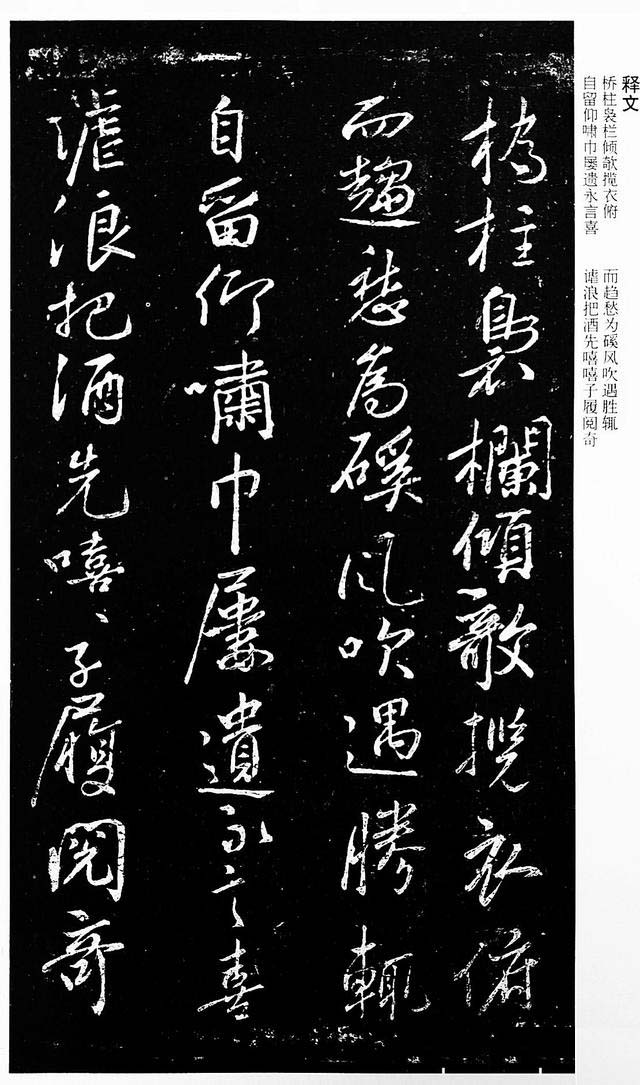 释文
桥柱袅栏倾欹揽衣俯　而趋愁为磎风吹遇胜辄
自留仰啸巾屡遗永言喜　谑浪把酒先嘻嘻子履阅奇
橋柱裊欄傾欹攬衣俯
而趨愁為磎風吹遇勝輒
自留仰嘯巾屢遺永言喜
謔浪把酒先嘻〻子履閱奇